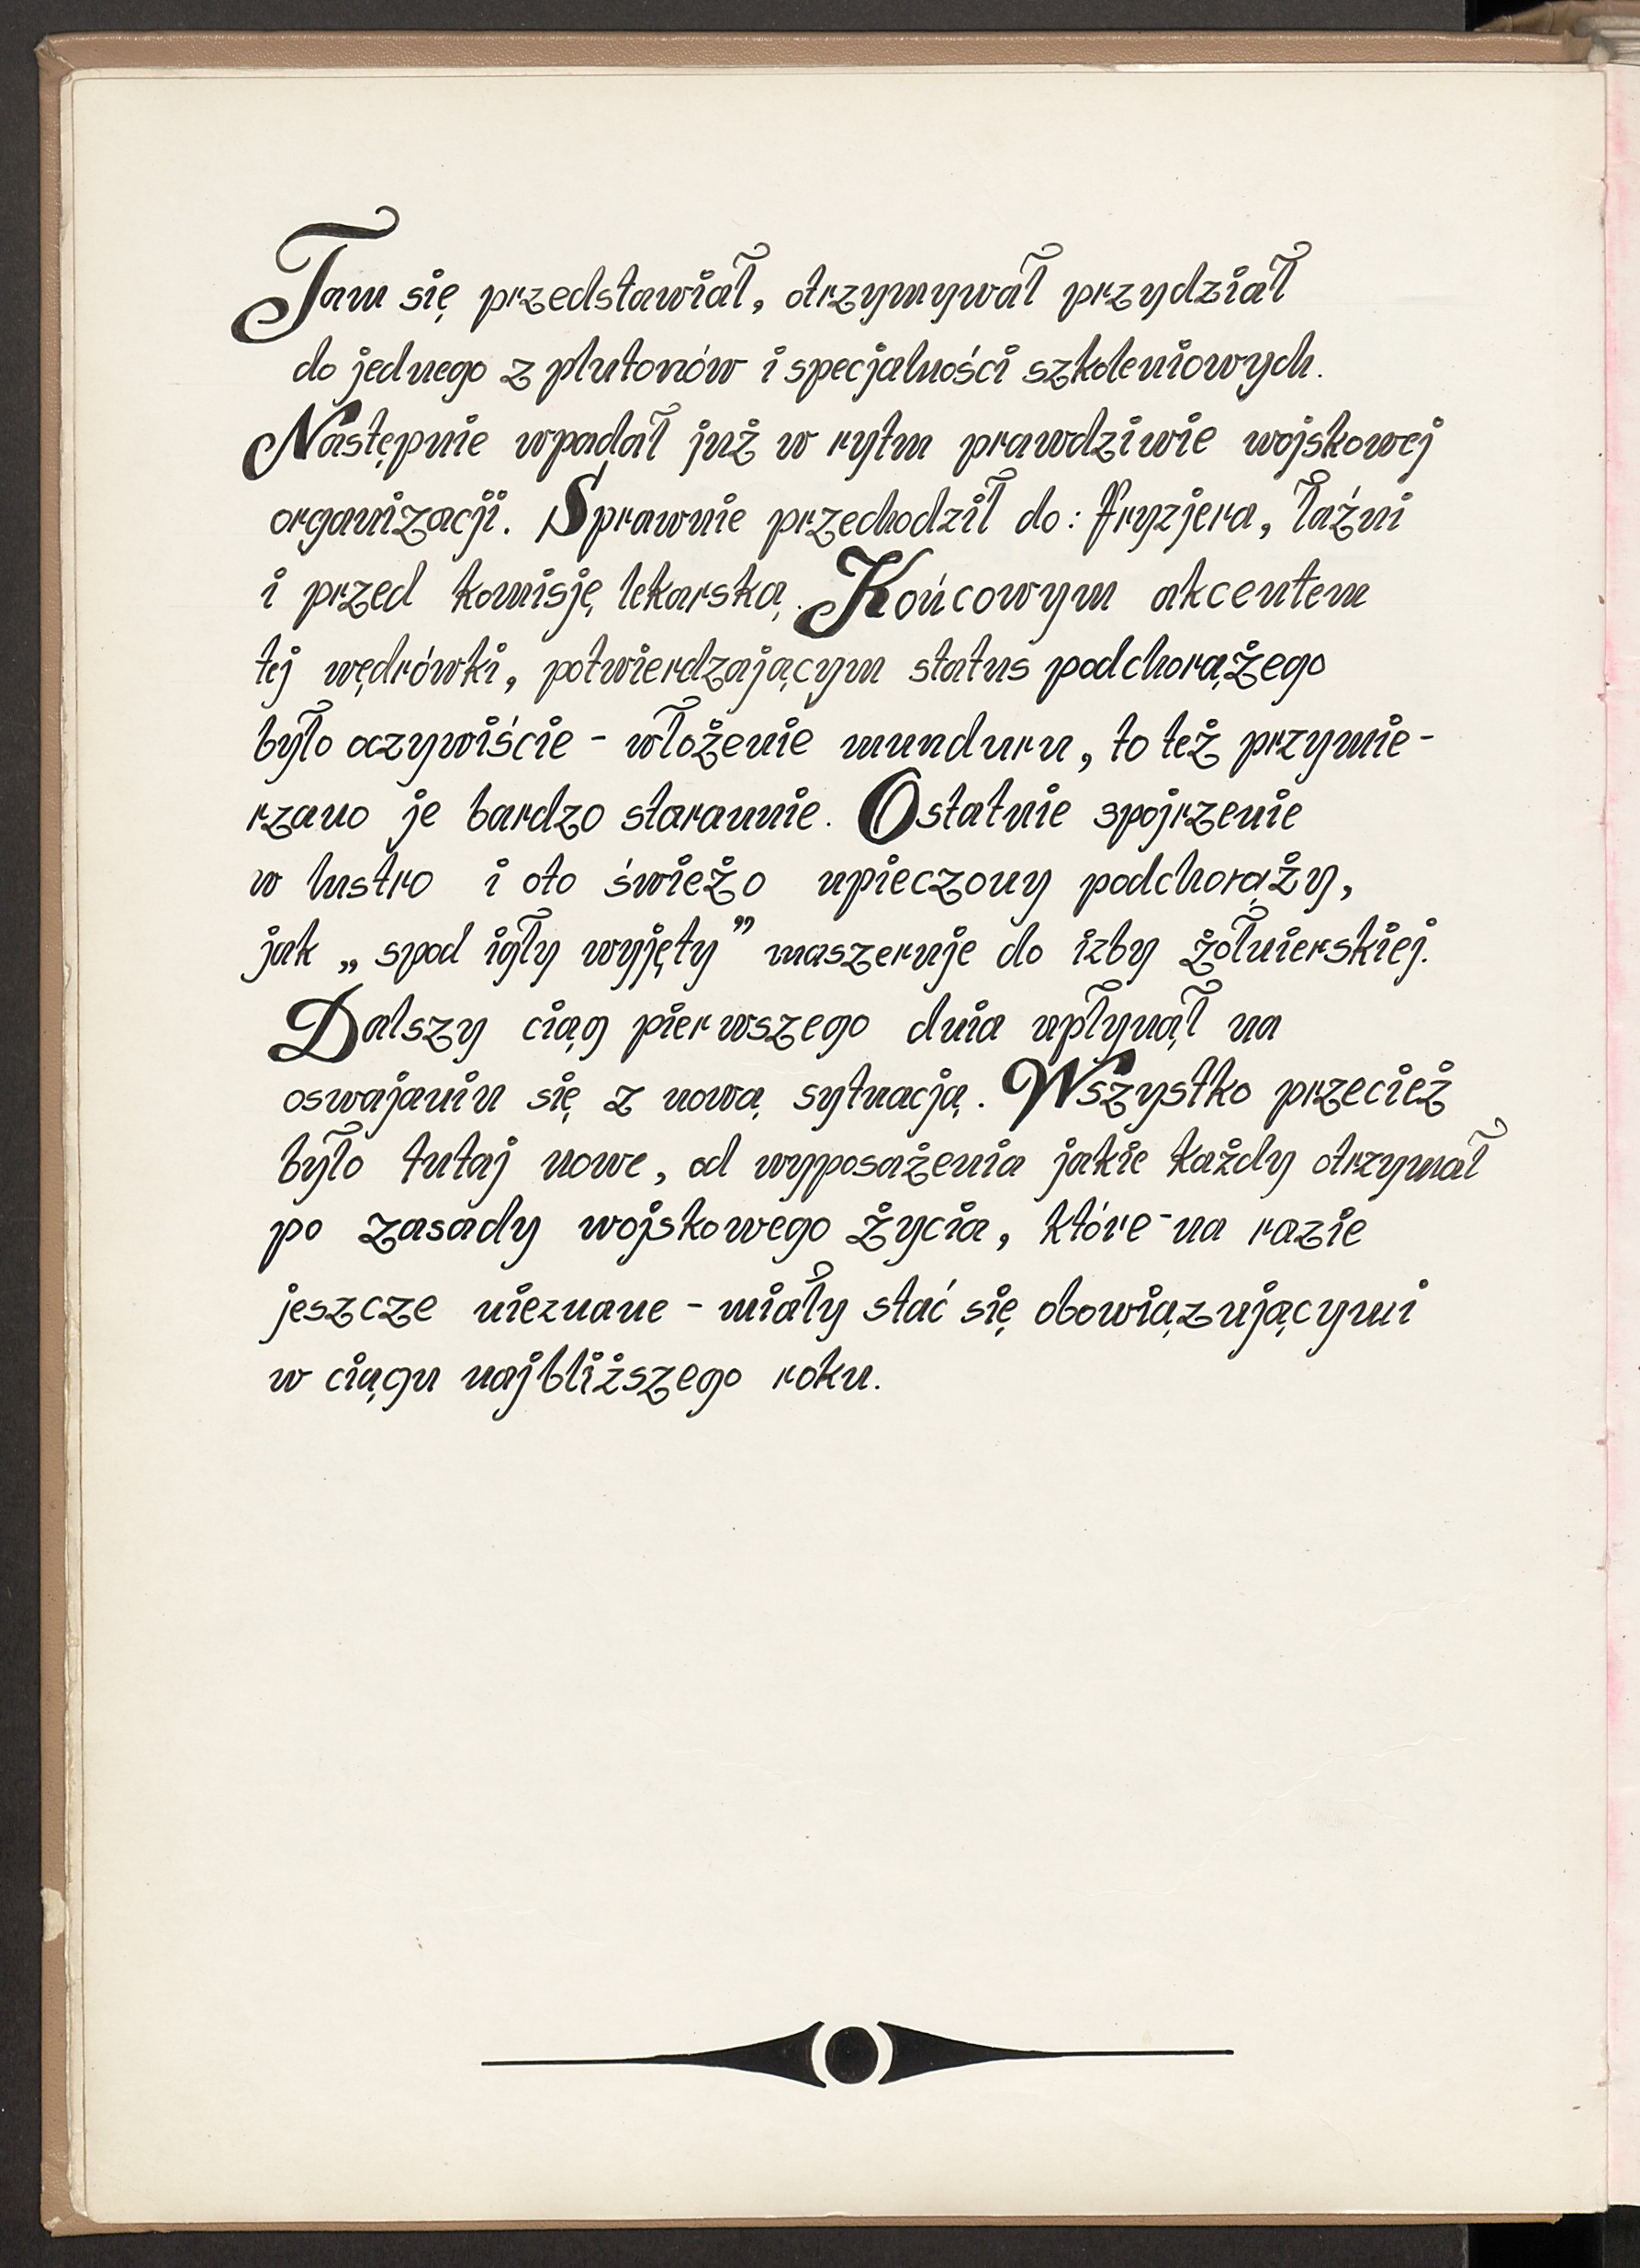 Tam się przedstawiał, otrzymywał przydział
do jednego z plutonów i specjalności szkoleniowych.
Następnie wpadał już w rytm prawdziwie wojskowej
organizacji. Sprawnie przechodził do: fryzjera, łaźni
i przed komisję lekarską. Końcowym akcentem
tej wędrówki, potwierdzającym status podchorążego
było oczywiście - włożenie munduru, to też przymie-
rzano je bardzo starannie. Ostatnie spojrzenie
w lustro i oto świeżo upieczony podchorąży,
jak „spod igły wyjęty” maszeruje do izby żołnierskiej.
Dalszy ciąg pierwszego dnia upłynął na
oswajaniu się z nową sytuacją. Wszystko przecież
było tutaj nowe, od wyposażenia jakie każdy otrzymał
po zasady wojskowego życia, które - na razie
jeszcze nieznane - miały stać się obowiązującymi
w ciągu najbliższego roku.